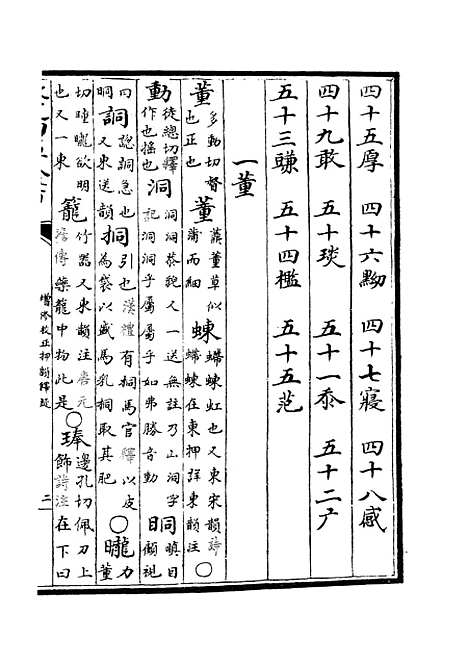 四十五厚　四十六黝　四十七寑　四十八感
四十九敢　五十琰　五十一忝　五十二广
五十三豏　五十四檻　五十五范
一董
董多動切督也正也董蕀董草似蒲而細蝀螮蝀虹也又東宋韻螮蝀在東押詳東韻注○
動徒總切釋作也搖也洞洞洞恭貌人一送無註乃山洞字記洞洞乎屬屬乎如弗勝音動㫽瞋目目顧視
詷諰詷急也又末送韻挏引也漢禮有挏馬官釋以皮為袋以盛馬乳挏取其肥○曨力董
切曈曨欲明也又一東籠竹器又東韻注唐元澹傳藥籠中物此是○琫邊孔切佩刀上飾詩注在下曰
增修校正押韻釋疑
二